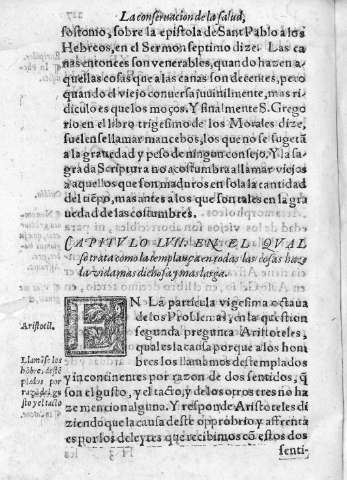 La conseruacion de la salud,
sostomo, sobre la epistola de Sant Pablo a los
Hebreos, en el Sermon septimo dize: Las ca
nas entonces son venerables, quando hazen a-
quellas cosas que a las canas son decentes, pero
quando el viejo conuersa iuuenilmente, mas ri-
diculo es que los moços. Y finalmente S. Grego
rio en el libro trigesimo de los Morales dize,
suelense llamar mancebos, los que no se sugetã
a la grauedad y peso de ningun consejo. Y la sa-
grada Scriptura no acostumbra a llamar viejos
a aquellos que son maduros en sola la cantidad
del tiẽpo, mas antes a los que son tales en la gra
uedad de las costumbres.
CAPITVLO LVII. EN EL QVAL
se trata como la templança en todas las cosas haze
la vida mas dichosa y mas larga.
EN La particula vigesima octaua
de los Problemas, en la question
segunda pregunta Aristoteles,
qual es la causa porque a los hom
bres los llamamos destemplados
y incontinentes por razon de dos sentidos, q̃
son el gusto, y el tacto, y de los otros tres no ha
ze mencion alguna. Y responde Aristoteles di
ziendo que la causa deste opprobrio y affrenta
es por los deleytes que recibimos cõ estos dos
senti-
Aristotil.
Llamãse los
hõbre, destẽ
plados por
razõ del gu
sto y el tacto